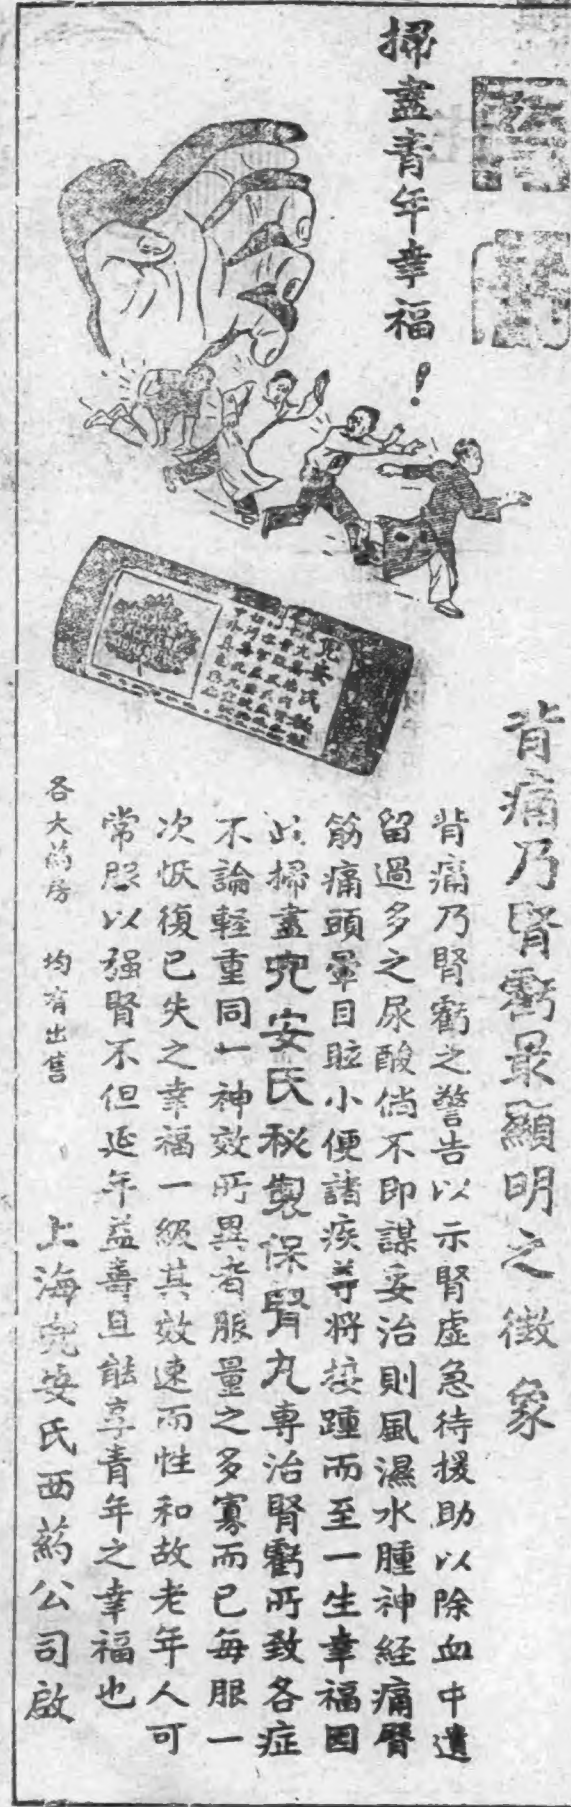 腎虧
掃盡青年幸福！
背痛乃腎虧最顯明之徵象
背痛乃腎虧之警告以示腎虛急待援助以除血中遺
留過多之尿酸倘不即謀妥治則風濕水腫神經痛腎
筋痛頭暈目眩小便諸疾等將接踵而至一生幸福因
此掃盡兜安氏秘製保腎丸專治腎虧所致各症
不論輕重同一神效所異者服量之多寡而已每服一
次恢復已失之幸福一級其效速而性和故老年人可
常服以強腎不但延年益壽且能享青年之幸福也
各大葯房 均有出售
上海兜安氏西葯公司啟
兜安氏秘製